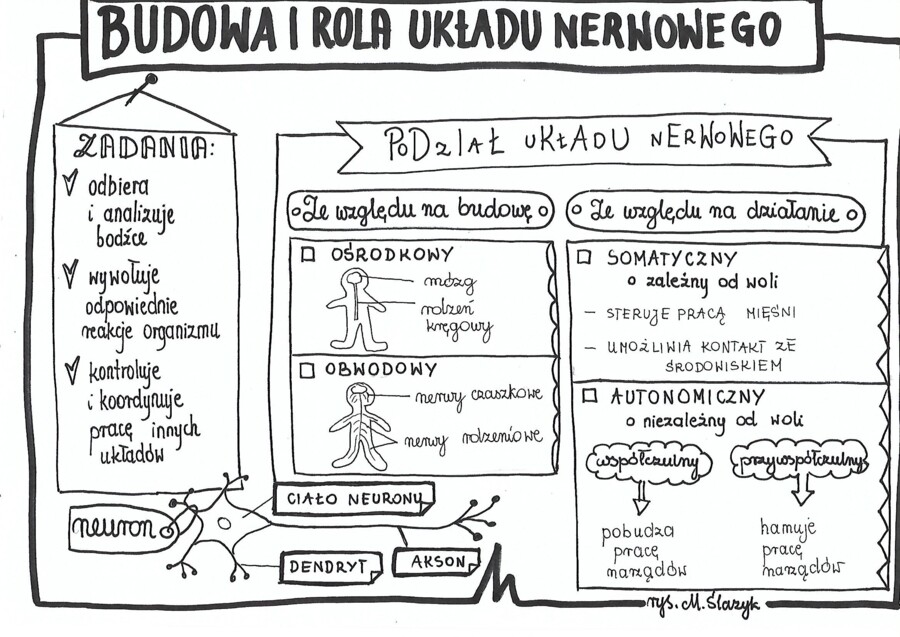 BUDOWA I ROLA UKŁADU NERWOWEGO
ZADANIA:
odbiera
i analizuje
bodźce
wywołuje
odpowiednie
reakcje organizmu
kontroluje
i koordynuje
pracę innych
układów
PODZIAŁ UKŁADU NERWOWEGO
Ze względu na budowę
OŚRODKOWY
mózg
rdzeń
kręgowy
OBWODOWY
nerwy czaszkowe
nerwy rdzeniowe
Ze względu na działanie
SOMATYCZNY
o zależny od woli
– STERUJE PRACĄ MIĘŚNI
– UMOŻLIWIA KONTAKT ZE
ŚRODOWISKIEM
AUTONOMICZNY
o niezależny od woli
współczulny
przywspółczulny
pobudza
pracę
narządów
hamuje
pracę
narządów
neuron
CIAŁO NEURONU
DENDRYT
AKSON
rys. M. Ślazyk